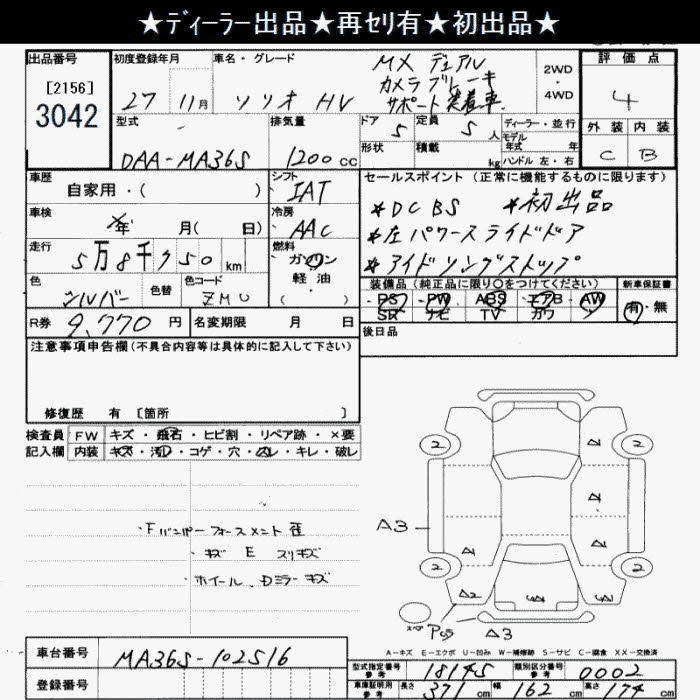 ★ディーラー出品★再セリ有★初出品★
出品番号 初度登録年月 車名・グレード 評価点
[2156]
3042
27 11月 ソリオ HV
MX デュアル
カメラブレーキ
サポート装着車
2WD
・
4WD
4
型式 排気量 ドア 定員 ディーラー・並行
DAA-MA36S 1200cc 5 5人
モデル年式 年
形状 積載 kg ハンドル 左・右
外装 内装
C B
車歴 シフト セールスポイント(正常に機能するものに限ります)
自家用・( ) IAT
*DCBS *初出品
車検 冷房
年 月( 日) AAC
*左パワースライドドア
走行 燃料
5万8千750km ガソリン
*アイドリングストップ
軽油
・( )
色 色替 色コード
シルバー ZMU
装備品(純正品に限り○をつけてください) 新車保証書
PS・PW・ABS・エアB・AW 有・無
SR ナビ TV カワ
R券 9,770円 名変期限 月 日
後日品
注意事項申告欄(不具合内容等は具体的に記入して下さい)
修復歴 有 [箇所 ]
検査員 FW キズ・飛石・ヒビ割・リペア跡・×要
記入欄 内装 キズ・汚れ・コゲ・穴・スレ・キレ・破レ
・Fバンパーフォースメント歪
・キズ E スリキズ
・ホイール、Dミラーキズ
2 2
A3
2 2
A2
A3
A-キズ E-エクボ U-凹み W-補修跡 S-サビ C-腐食 XX-交換済
車台番号 MA36S-102516
登録番号
型式指定番号 参考 18145 類別区分番号 参考 0002
車庫証明用 参考 長さ 371cm 幅 162cm 高さ 174cm